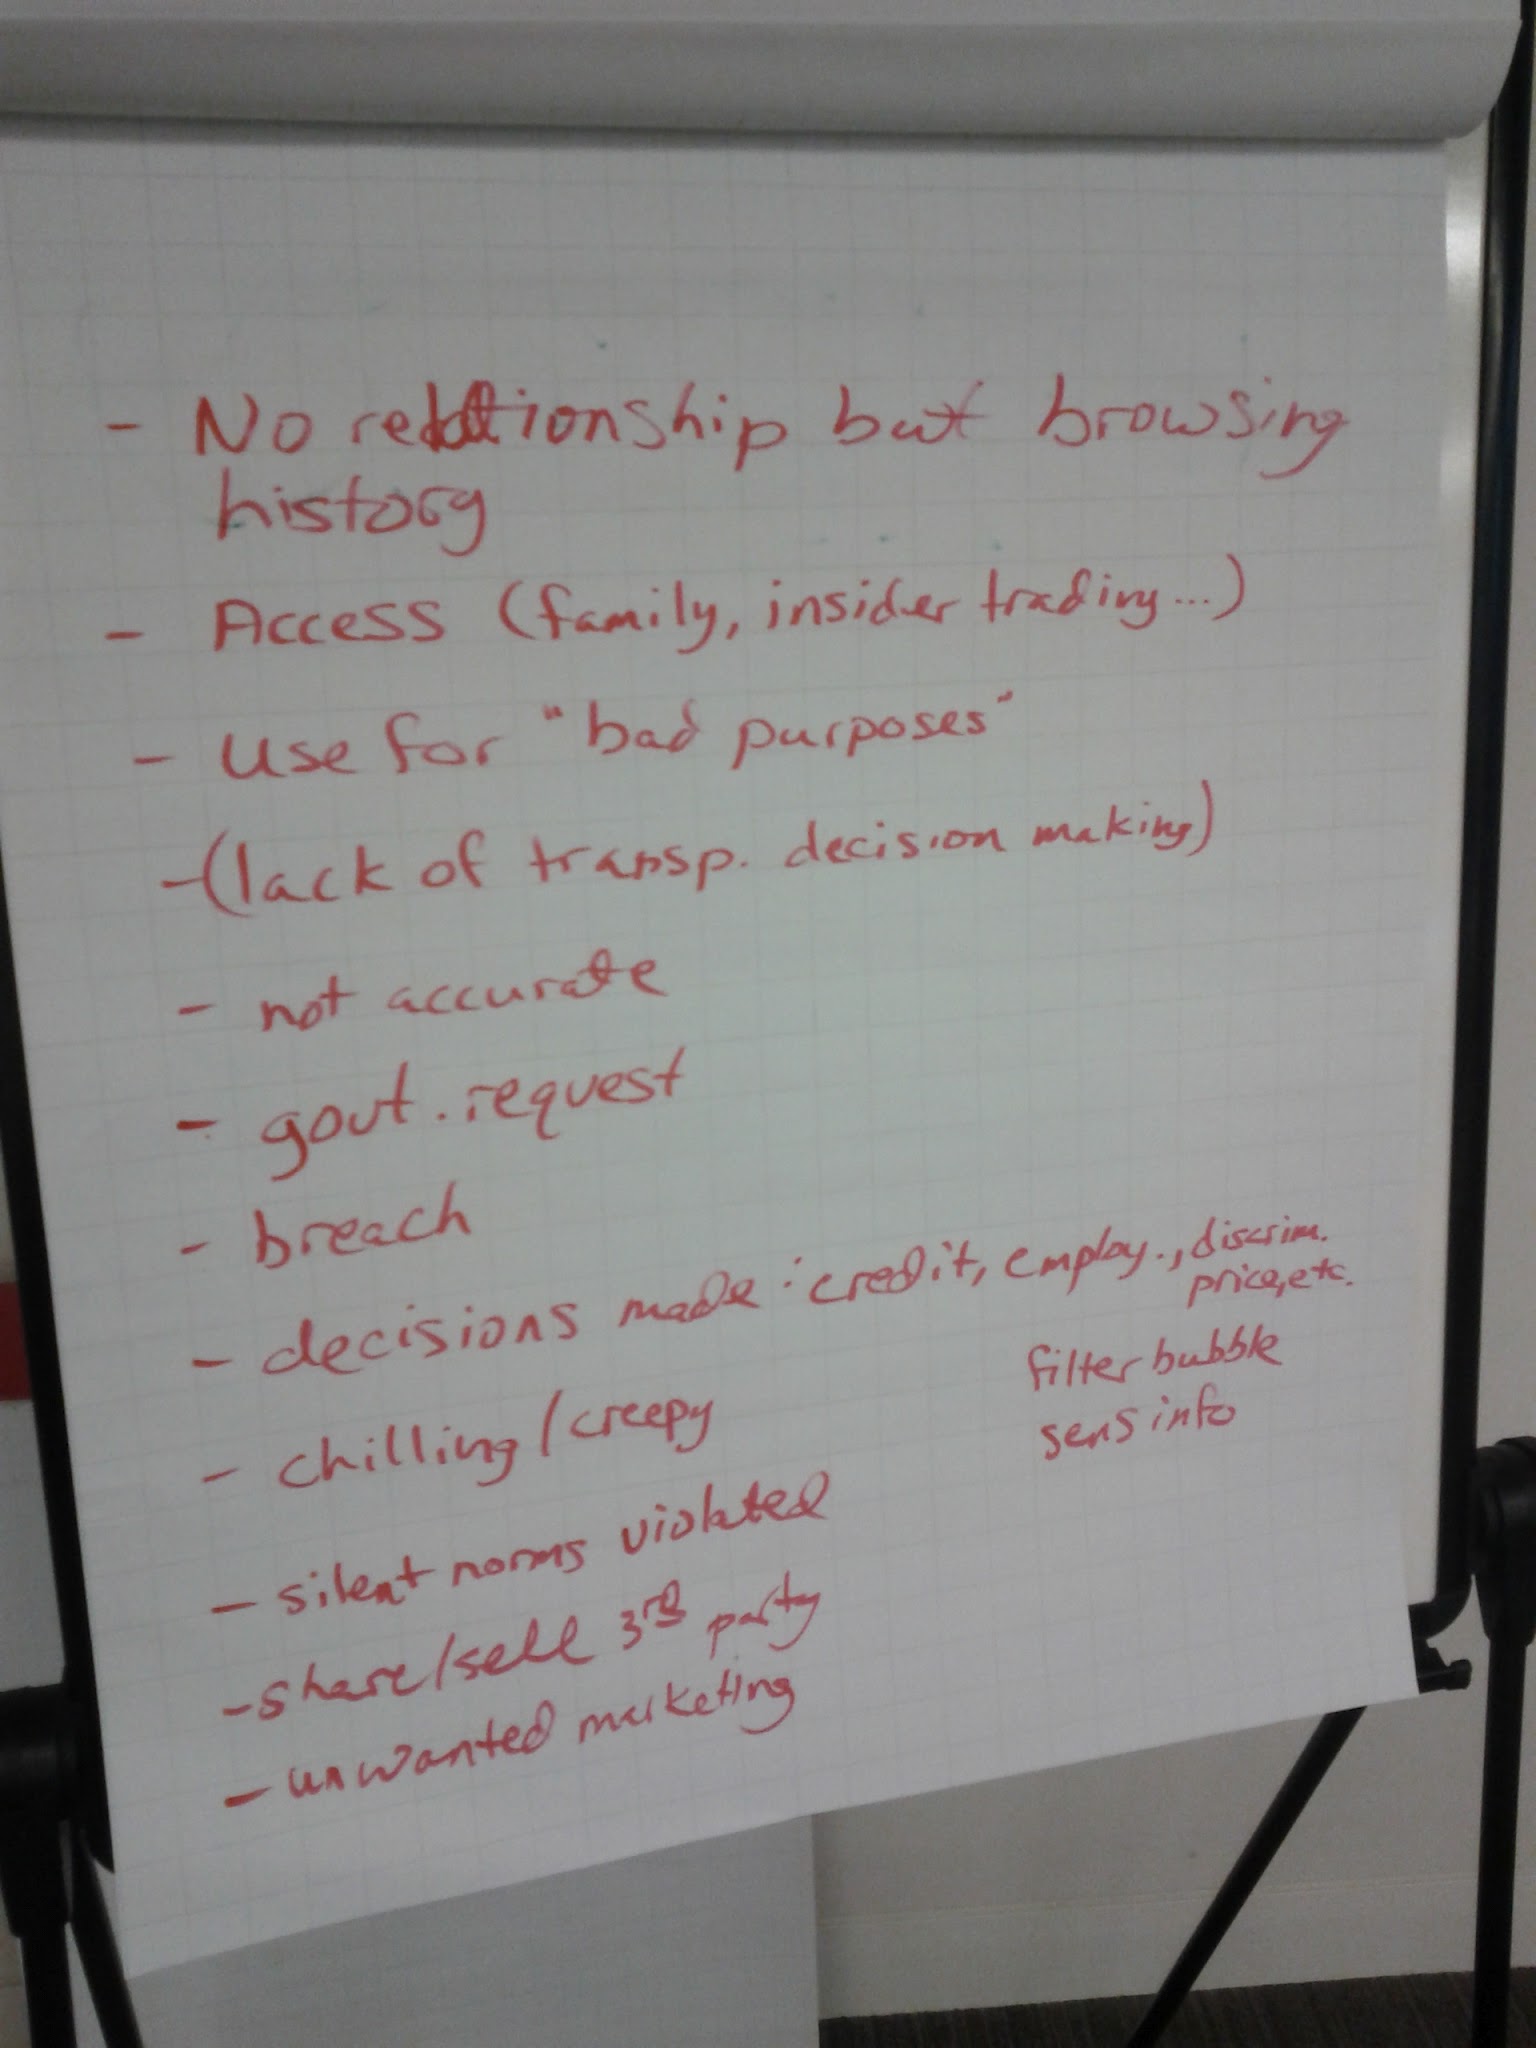 - No relationship but browsing
history
- Access (family, insider trading...)
- Use for "bad purposes"
- (lack of transp. decision making)
- not accurate
- govt. request
- breach
- decisions made: credit, employ., discrim.
price, etc.
filter bubble
sens info
- chilling/creepy
- silent norms violated
- share/sell 3rd party
- unwanted marketing